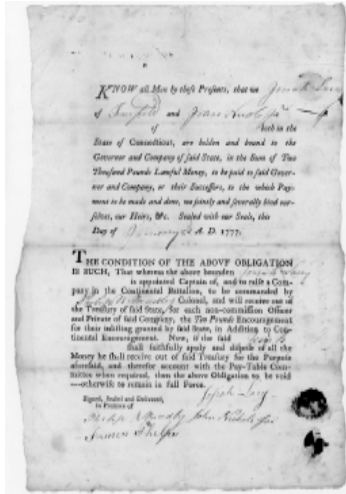 KNOW all Men by these Presents, that we Josiah Lacey
of Fairfield and
of both in the
State of Connecticut, are holden and bound to the
Governor and Company of said State, in the Sum of Two
Thousand Pounds Lawful Money, to be paid to said Gover-
nor and Company, or their Successors, to the which Pay-
ment to be made and done, we jointly and severally bind our-
selves, our Heirs, &c. Sealed with our Seals, this
Day of A. D. 1777.
THE CONDITION OF THE ABOVE OBLIGATION
IS SUCH, That whereas the above bounden Josiah Lacey
is appointed Captain of, and to raise a Com-
pany in the Continental Battalion, to be commanded by
Philip B. Bradley Colonel, and will receive out of
the Treasury of said State, for each non-commission Officer
and Private of said Company, the Ten Pounds Encouragement
for their inlisting granted by said State, in Addition to Con-
tinental Encouragement. Now, if the said
shall faithfully apply and dispose of all the
Money he shall receive out of said Treasury for the Purpose
aforesaid, and therefor account with the Pay-Table Com-
mittee when required, then the above Obligation to be void
—otherwise to remain in full Force.
Signed, Sealed and Delivered,
in Presence of
Josiah Lacey
Philip B Bradley John
Phelps